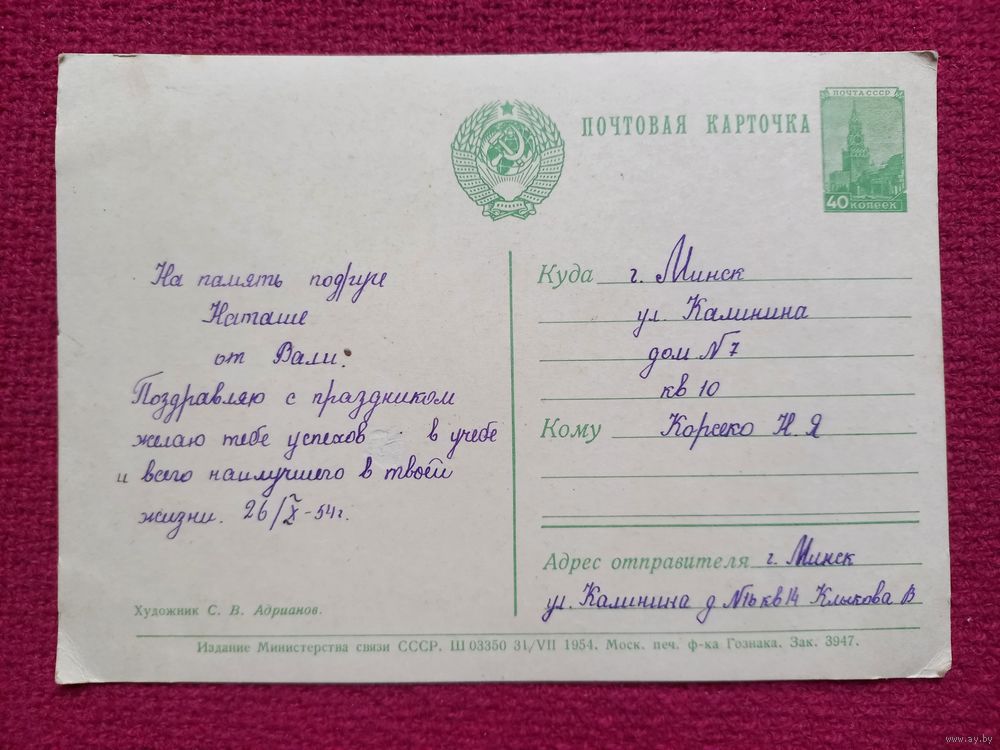 ПОЧТА СССР
ПОЧТОВАЯ КАРТОЧКА
40 КОПЕЕК
На память подруге
Наташе
от Вали.
Поздравляю с праздником
желаю тебе успехов в учебе
и всего наилучшего в твоей
жизни. 26/X-54г.
Художник С. В. Адрианов.
Куда г. Минск
ул. Калинина
дом N7
кв 10
Кому Н. Я
Адрес отправителя г. Минск
ул. Калинина д N1б кв 14 Клыкова В
Издание Министерства связи СССР. Ш 03350 31/VII 1954. Моск. печ. ф-ка Гознака. Зак. 3947.
www.ay.by